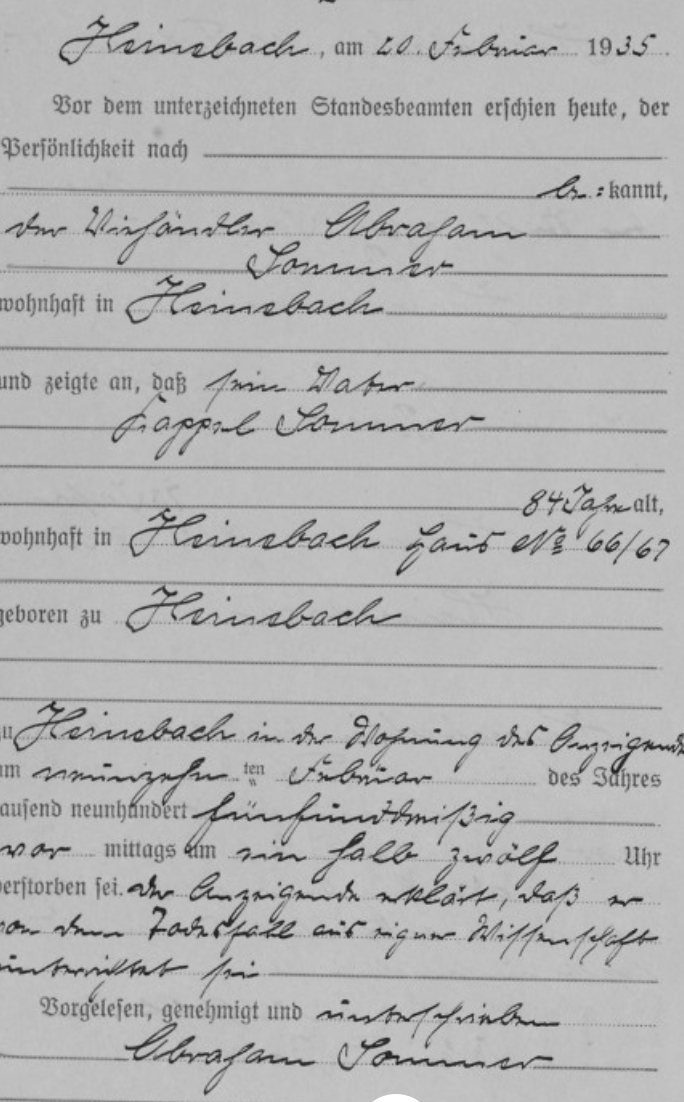 Heinebach, am 20. Februar 1935.
Vor dem unterzeichneten Standesbeamten erschien heute, der
Persönlichkeit nach
be=kannt,
der Viehändler Abraham
Sommer
wohnhaft in Heinebach
und zeigte an, daß sein Vater
Kappel Sommer
84 Jahre alt,
wohnhaft in Heinebach Haus № 66/67
geboren zu Heinebach
zu Heinebach in der Wohnung des Anzeigende
am neunzehn ten Februar des Jahres
tausend neunhundert fünfunddreißig
vor mittags um ein halb zwölf Uhr
verstorben sei. der Anzeigende erklärt, daß er
von dem Todesfall aus eigner Wissenschaft
unterrichtet sei
Vorgelesen, genehmigt und unterschrieben
Abraham Sommer